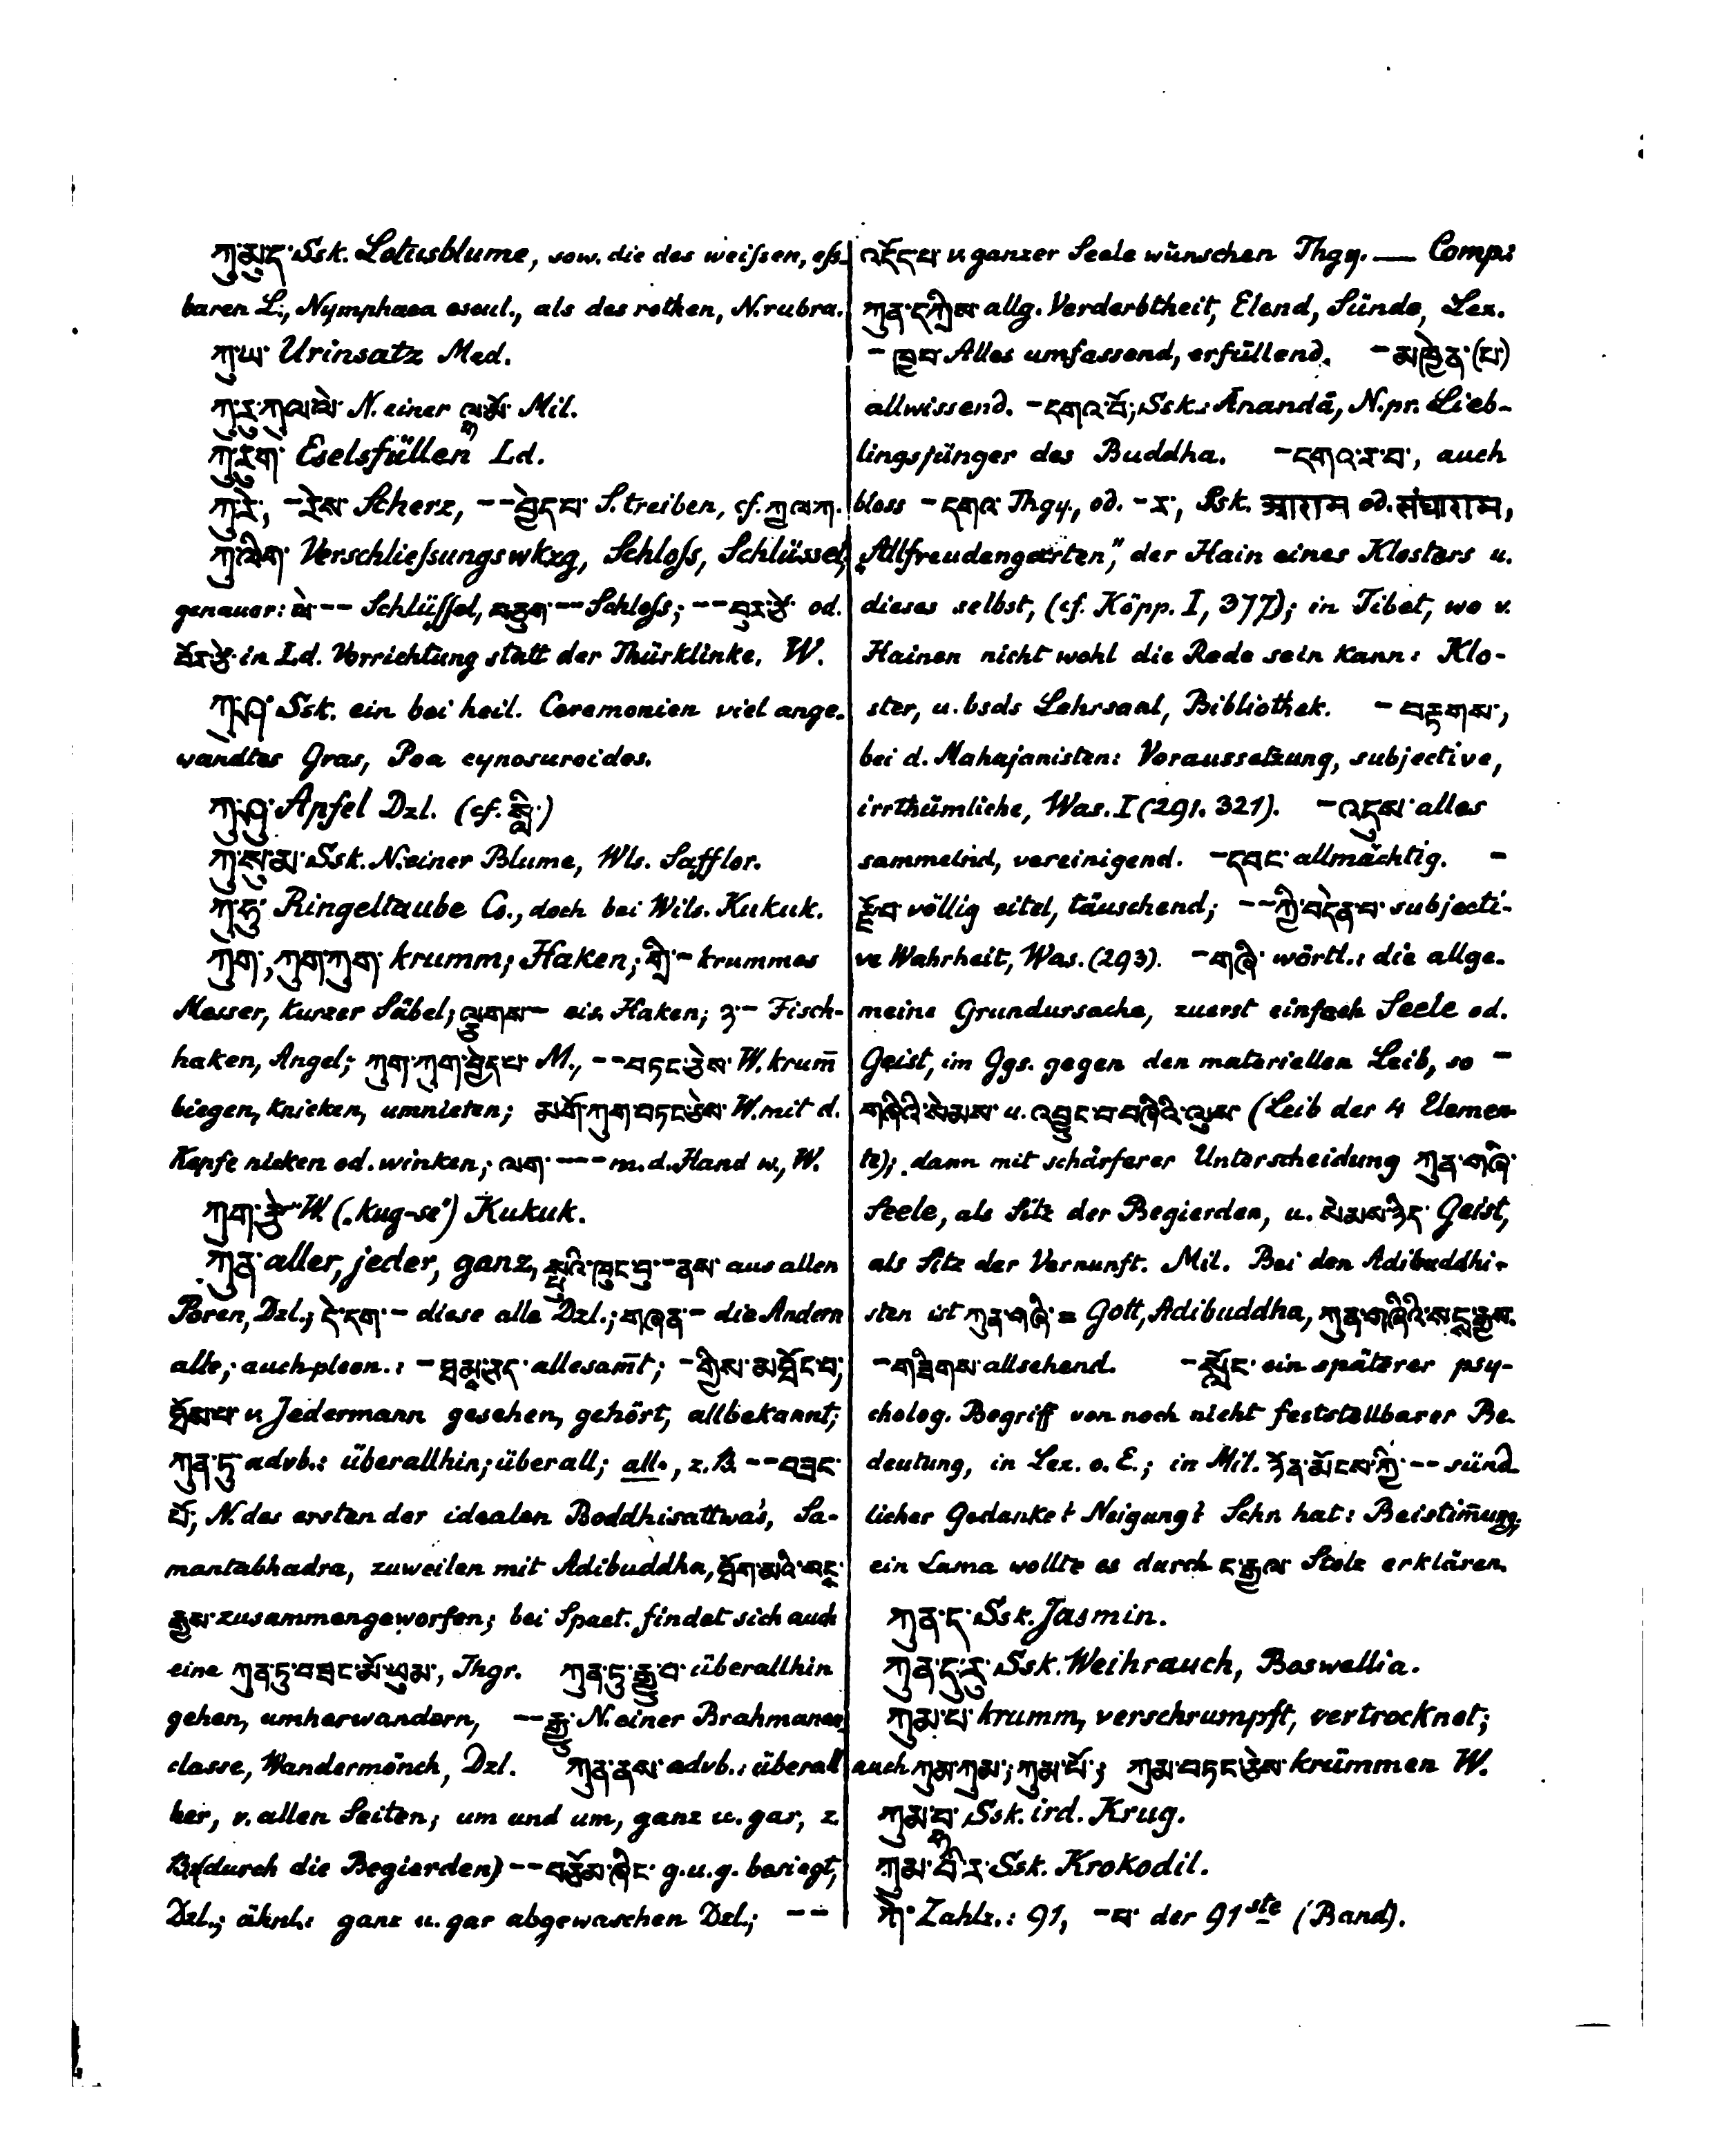 ཀུ་མུད་ Ssk. Lotusblume, sow. die des weiſsen, eſs-
baren L., Nymphaea escul., als des rothen, N. rubra.
ཀུ་ཡ་ Urinsatz Med.
ཀུ་རུ་ཀུལ་ལེ་ N. einer ལྷ་མོ་ Mil.
ཀུ་རུག་ Eselsfüllen Ld.
ཀུ་རེ་, -རེས་ Scherz, --བྱེད་པ་ S. treiben, cf. ཀྱལ་ཀ་
ཀུ་ལིག་ Verschlieſsungswkzg, Schloſs, Schlüssel,
genauer: ལེ་-- Schlüſſel, -- Schloſs; -- od.
in Ld. Vorrichtung statt der Thürklinke. W.
ཀུ་ཤ་ Ssk. ein bei heil. Ceremonien viel ange-
wandtes Gras, Poa cynosuroides.
ཀུ་ཤུ་ Apfel Dzl. (cf. སླི་)
ཀུ་སུ་མ་ Ssk. N. einer Blume, Wls. Safflor.
ཀུ་ཧུ་ Ringeltaube Cs., doch bei Wils. Kukuk.
ཀུག་, ཀུག་ཀུག་ krumm; Haken; གྲི་- krummes
Messer, kurzer Säbel; ལྕགས་- eis. Haken; ཉ་- Fisch-
haken, Angel; ཀུག་ཀུག་བྱེད་པ་ M., --བཏང་ཅེས་ W. krum̄
biegen, knicken, umnieten; མགོ་ཀུག་བཏང་ཅེས་ W. mit d.
Kopfe nicken od. winken; ལག་--- m. d. Hand w., W.
ཀུག་ཙེ་ W. („kug-se“) Kukuk.
ཀུན་ aller, jeder, ganz, སྤུའི་ཁུང་བུ་-ནས་ aus allen
Poren, Dzl.; དེ་དག་- diese alle Dzl.; གཞན་- die Andern
alle; auch pleon.: -ཐམ་ཅད་ allesam̄t; -གྱིས་མཐོང་བ་,
ཐོས་པ་ v. Jedermann gesehen, gehört, allbekannt;
ཀུན་ཏུ་ advb.: überallhin; überall; all-, z. B. --བཟང་
པོ་, N. des ersten der idealen Boddhisattwa's, Sa-
mantabhadra, zuweilen mit Adibuddha, ཐོག་མའི་སངས་
རྒྱས་ zusammengeworfen; bei Spaet. findet sich auch
eine ཀུན་ཏུ་བཟང་མོ་ཡུམ་, Thgr. ཀུན་ཏུ་རྒྱུ་བ་ überallhin
gehen, umherwandern, --རྒྱུ་ N. einer Brahmanen-
classe, Wandermönch, Dzl. ཀུན་ནས་ advb.: überall
her, v. allen Seiten; um und um, ganz u. gar, z.
B. (durch die Begierden) --བཅོམ་ཞིང་ g. u. g. besiegt,
Dzl.; ähnl.: ganz u. gar abgewaschen Dzl.; --
འདོད་པ་ v. ganzer Seele wünschen Thgy. — Comp.:
ཀུན་དཀྲིས་ allg. Verderbtheit, Elend, Sünde, Lex.
-ཁྱབ་ Alles umfassend, erfüllend. -མཁྱེན་(པ་)
allwissend. -དགའ་བོ་, Ssk.: Ānandā, N. pr. Lieb-
lingsjünger des Buddha. -དགའ་ར་བ་, auch
bloss -དགའ་ Thgy., od. -ར་, Ssk. आराम od. संघाराम,
„Allfreudengarten“, der Hain eines Klosters u.
dieses selbst, (cf. Köpp. I, 377); in Tibet, wo v.
Hainen nicht wohl die Rede sein kann: Klo-
ster, u. bsds Lehrsaal, Bibliothek. -བརྟགས་,
bei d. Mahajanisten: Voraussetzung, subjective,
irrthümliche, Was. I (291. 321). -འདུས་ alles
sammelnd, vereinigend. -དབང་ allmächtig. -
རྫོབ་ völlig eitel, täuschend; --ཀྱི་བདེན་པ་ subjecti-
ve Wahrheit, Was. (293). -གཞི་ wörtl.: die allge-
meine Grundursache, zuerst einfach Seele od.
Geist, im Ggs. gegen den materiellen Leib, so -
གཞིའི་སེམས་ u. འབྱུང་བ་བཞིའི་ལུས་ (Leib der 4 Elemen-
te); dann mit schärferer Unterscheidung ཀུན་གཞི་
Seele, als Sitz der Begierden, u. སེམས་ཉིད་ Geist,
als Sitz der Vernunft. Mil. Bei den Adibuddhi-
sten ist ཀུན་གཞི་ = Gott, Adibuddha, ཀུན་གཞིའི་སངས་རྒྱས་
-གཟིགས་ allsehend. -སློང་ ein späterer psy-
cholog. Begriff von noch nicht feststellbarer Be-
deutung, in Lex. o. E.; in Mil. ཉོན་མོངས་ཀྱི་-- sünd-
licher Gedanke? Neigung? Schn hat: Beistim̄ung;
ein Lama wollte es durch ང་རྒྱལ་ Stolz erklären.
ཀུན་ད་ Ssk. Jasmin.
ཀུན་དུ་རུ་ Ssk. Weihrauch, Boswellia.
ཀུམ་པ་ krumm, verschrumpft, vertrocknet;
auch ཀུམ་ཀུམ་; ཀུམ་པོ་; ཀུམ་བཏང་ཅེས་ krümmen W.
ཀུམ་བྷ་ Ssk. ird. Krug.
ཀུམ་བྷི་ར་ Ssk. Krokodil.
ཀེ་ Zahlz.: 91, -པ་ der 91ste (Band).